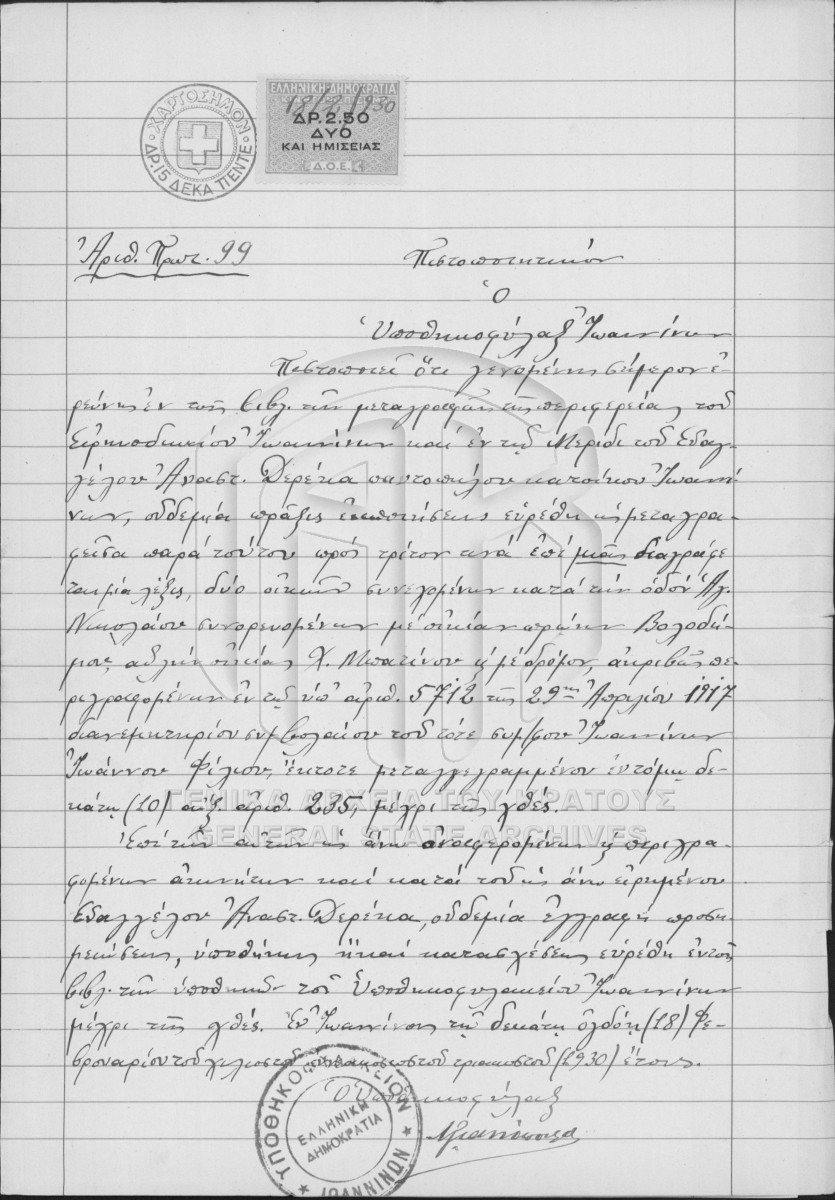 ΧΑΡΤΟΣΗΜΟΝ
ΔΡ.15 ΔΕΚΑ ΠΕΝΤΕ
ΕΛΛΗΝΙΚΗ ΔΗΜΟΚΡΑΤΙΑ
18/2/930
ΔΡ.2.50
ΔΥΟ
ΚΑΙ ΗΜΙΣΕΙΑΣ
Δ.Ο.Ε.
Ἀριθ. Πρωτ. 99
Πιστοποιητικόν
Ὁ
Ὑποθηκοφύλαξ Ἰωαννίνων
Πιστοποιεῖ ὅτι γενομένης σήμερον ἐ-
ρεύνης ἐν τοῖς βιβλ. τῶν μεταγραφῶν τῆς περιφερείας τοῦ
Εἰρηνοδικείου Ἰωαννίνων καί ἐν τῇ Μερίδι τοῦ Εὐαγ-
γέλου Ἀναστ. Δερέκα παντοπώλου κατοίκου Ἰωαννί-
νων, οὐδεμία πρᾶξις ἐκποιήσεως εὑρέθη ὡς μεταγρα-
φεῖσα παρά τούτου πρός τρίτον τινά ἐπί μιᾶς διαγράφε
ται μία λέξις, δύο οἰκιῶν συνεχομένων κατά τήν ὁδόν Ἁγ.
Νικολάου συνορευομένων μέ οἰκίαν πρώην Βολοδή-
μου, αὐλήν οἰκίας Χ. Μπατίνου ἤ μέ δρόμον, ἀκριβῶς πε-
ριγραφομένων ἐν τῷ ὑπ' ἀριθ. 5712 τῆς 29ης Ἀπριλίου 1917
διανεμητηρίου συμβολαίου τοῦ τότε συμ/φου Ἰωαννίνων
Ἰωάννου Φίλιου, ἔκτοτε μεταγεγραμμένου ἐν τόμῳ δε-
κάτῳ (10) αὔξ. ἀριθ. 235, μέχρι τῆς χθές.
Ἐπί τῶν αὐτῶν ὡς ἄνω ἀναφερομένων ἤ περιγρα-
φομένων ἀκινήτων καί κατά τοῦ ὡς ἄνω εἰρημένου
Εὐαγγέλου Ἀναστ. Δερέκα, οὐδεμία ἐγγραφή προση-
μειώσεως, ὑποθήκης ἤ καί κατασχέσεως εὑρέθη ἐν τοῖς
βιβλ. τῶν ὑποθηκῶν τοῦ Ὑποθηκοφυλακείου Ἰωαννίνων
μέχρι τῆς χθές. Ἐν Ἰωαννίνοις τῇ δεκάτῃ ὀγδόῃ (18) Φε-
βρουαρίου τοῦ χιλιοστοῦ ἐννεακοσιοστοῦ τριακοστοῦ (1930) ἔτους.
Ὁ Ὑποθηκοφύλαξ
ΥΠΟΘΗΚΟΦΥΛΑΚΕΙΟΝ ΙΩΑΝΝΙΝΩΝ
ΕΛΛΗΝΙΚΗ
ΔΗΜΟΚΡΑΤΙΑ
ΓΕΝΙΚΑ ΑΡΧΕΙΑ ΤΟΥ ΚΡΑΤΟΥΣ
GENERAL STATE ARCHIVES